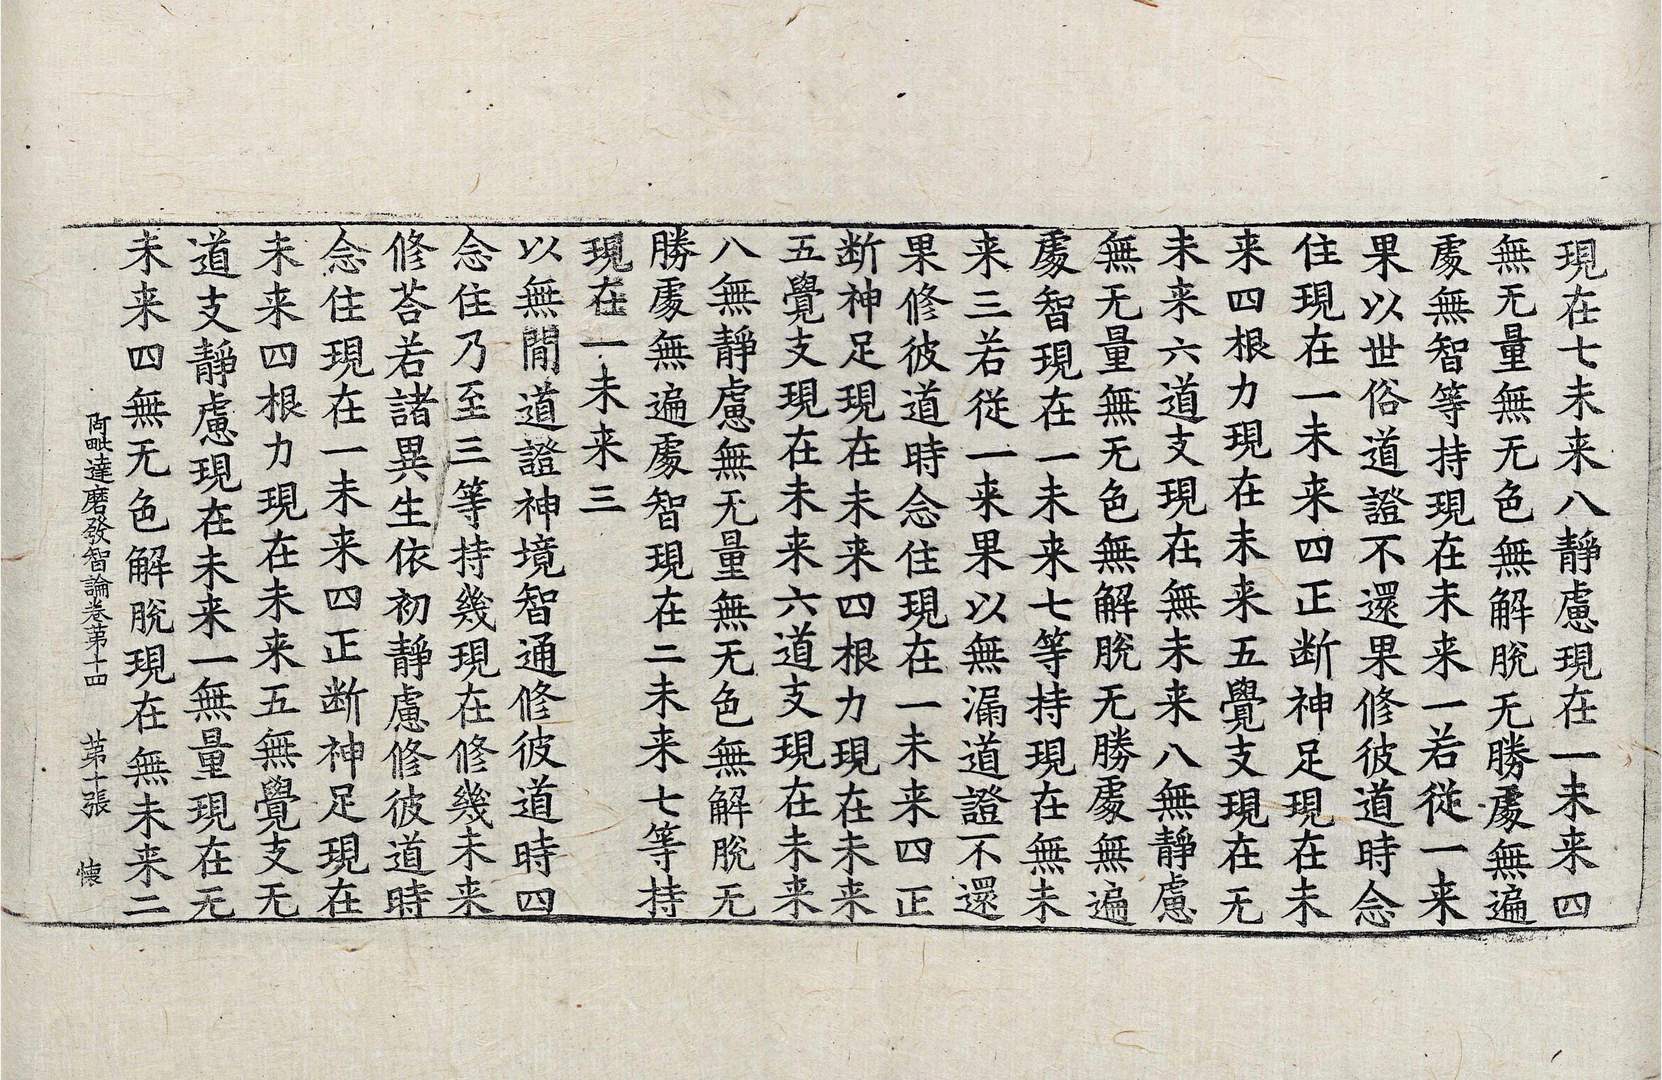 現在七未来八靜慮現在一未来四
無无量無无色無解脫无勝處無遍
處無智等持現在未来一若從一来
果以世俗道證不還果修彼道時念
住現在一未来四正断神足現在未
来四根力現在未来五覺支現在无
未来六道支現在無未来八無靜慮
無无量無无色無解脫无勝處無遍
處智現在一未来七等持現在無未
来三若從一来果以無漏道證不還
果修彼道時念住現在一未来四正
断神足現在未来四根力現在未来
五覺支現在未来六道支現在未来
八無靜慮無无量無无色無解脫无
勝處無遍處智現在二未来七等持
現在一未来三
以無閒道證神境智通修彼道時四
念住乃至三等持幾現在修幾未来
修荅若諸異生依初靜慮修彼道時
念住現在一未来四正断神足現在
未来四根力現在未来五無覺支无
道支靜慮現在未来一無量現在无
未来四無无色解脫現在無未来二
阿毗達磨發智論卷苐十四 苐十張 懷